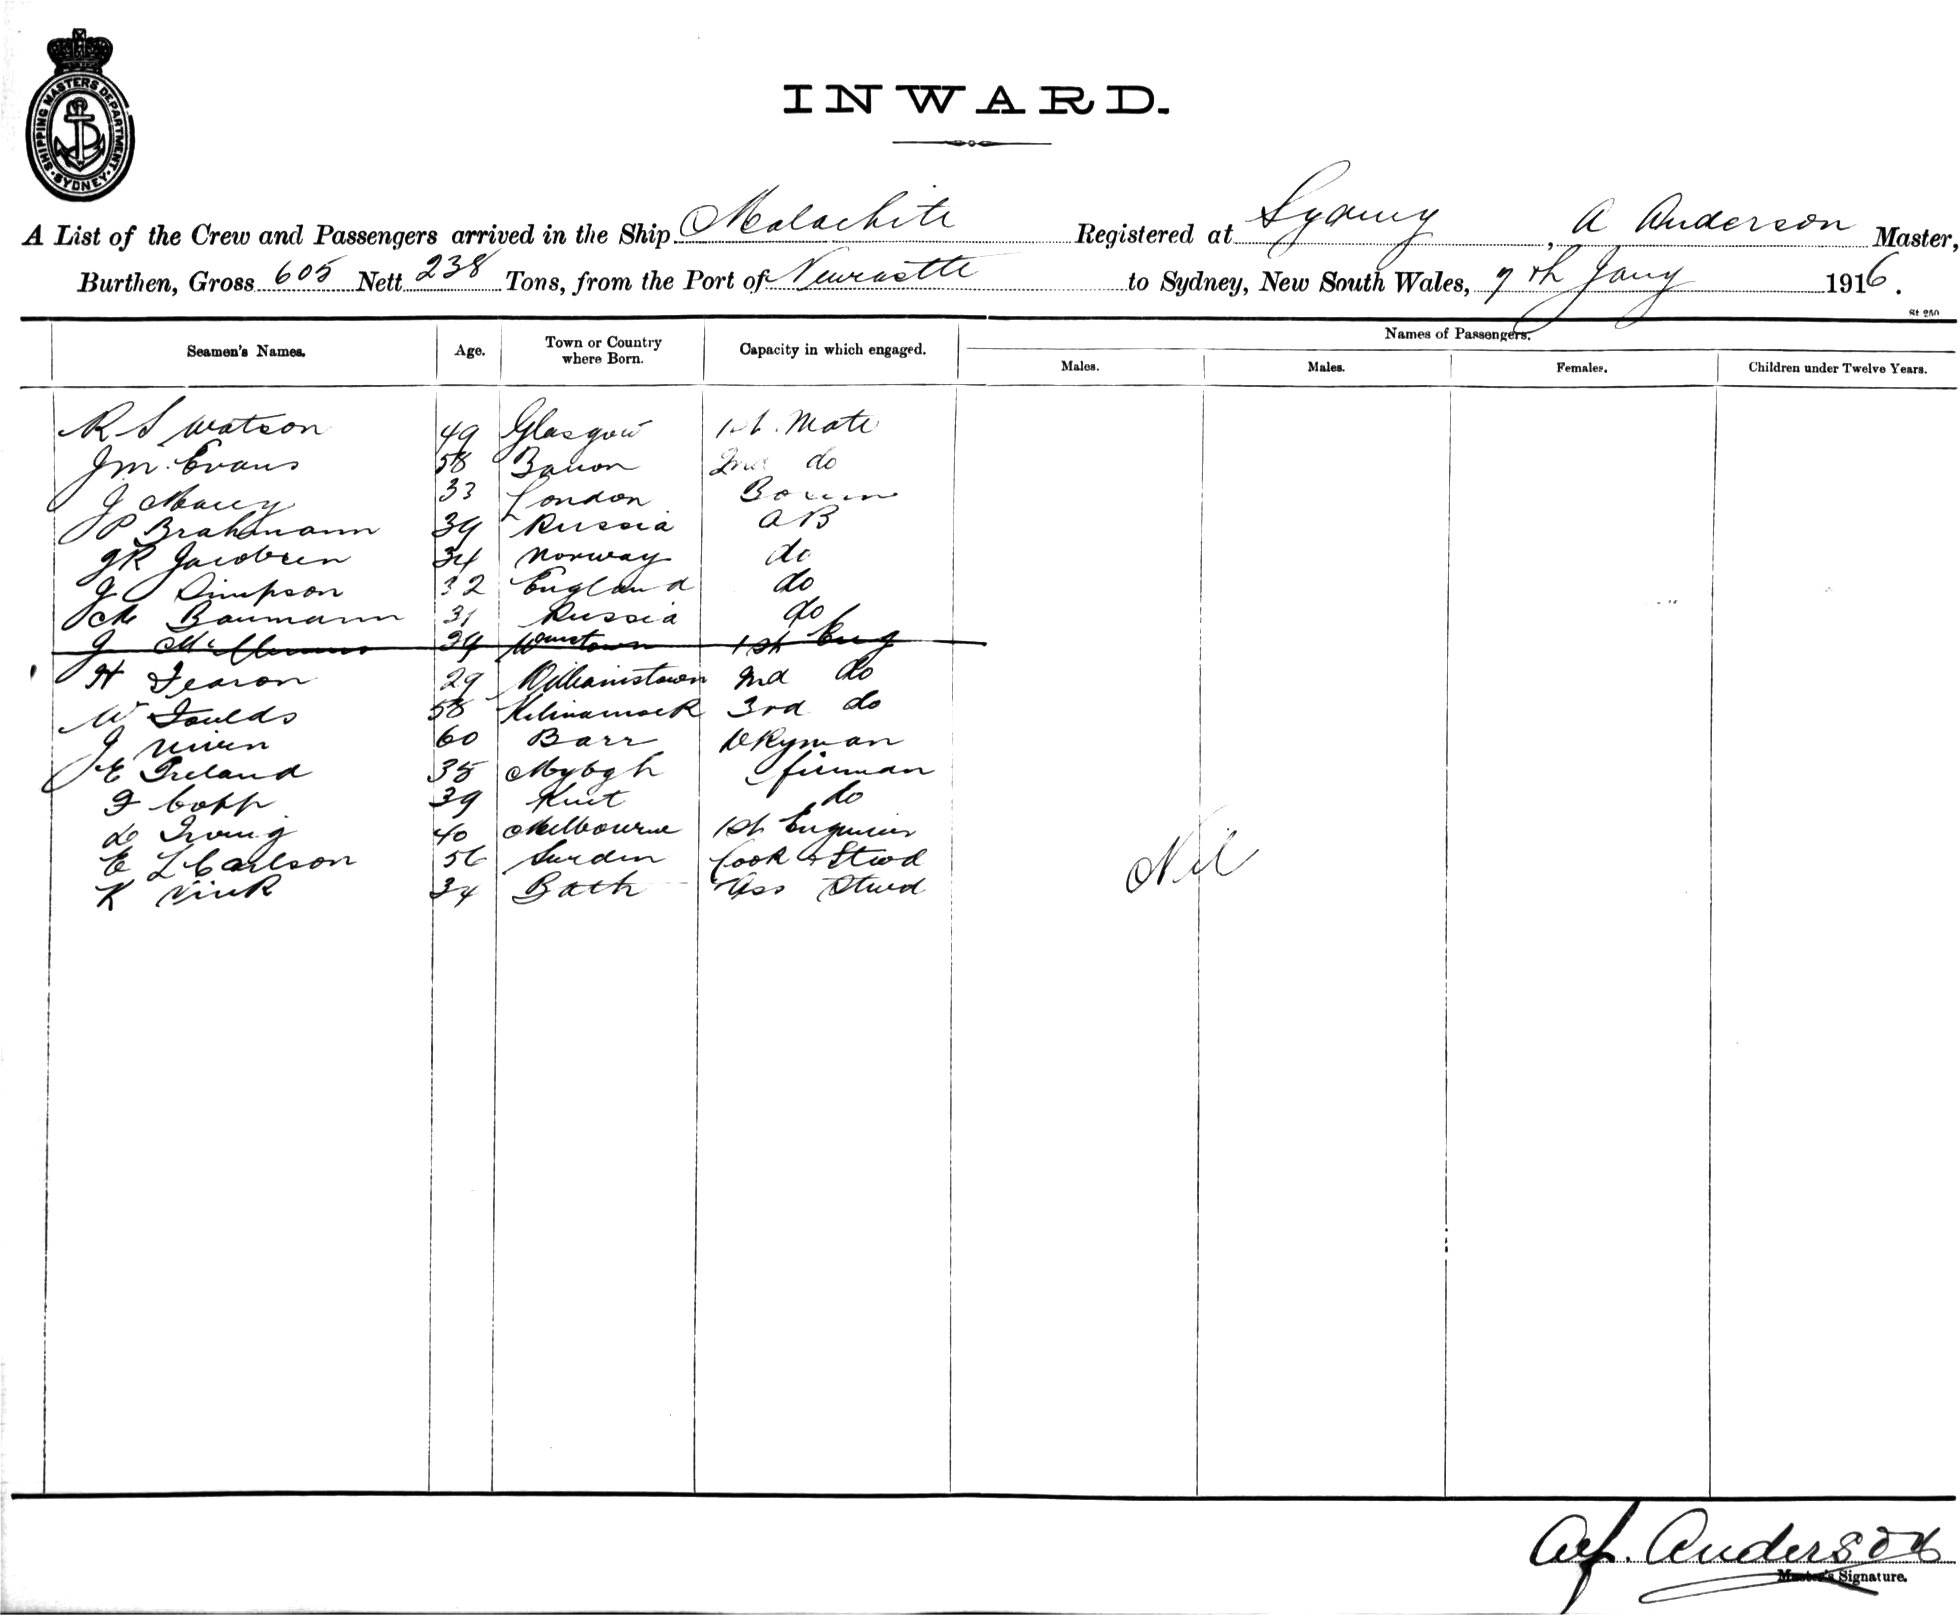 SHIPPING MASTERS DEPARTMENT
SYDNEY
INWARD.
A List of the Crew and Passengers arrived in the Ship Malachite Registered at Sydney, A Anderson Master,
Burthen, Gross 605 Nett 238 Tons, from the Port of Newcastle to Sydney, New South Wales, 7th Jany 1916.
St 250
Names of Passengers.
Seamen's Names. Age. Town or Country where Born. Capacity in which engaged. Males. Males. Females. Children under Twelve Years.
R S Watson 49 Glasgow 1st Mate
J M Evans 58 2nd do
J 33 London
P Brahmann 39 Russia AB
J R Jacobsen 34 Norway do
J Simpson 32 England do
M Baumann 31 Russia do
J 1st Eng
H Fearon 29 Williamstown 2nd do
W Foulds 58 3rd do
J Niven 60 Barr Dkyman
E Ireland 35 fireman
F Copp 39 Kent do
D Irving 40 Melbourne 1st Engineer
E L Carlson 56 Sweden Cook & Stwd
K Vink 34 Bath Ass Stwd
Nil
Anderson
Master's Signature.